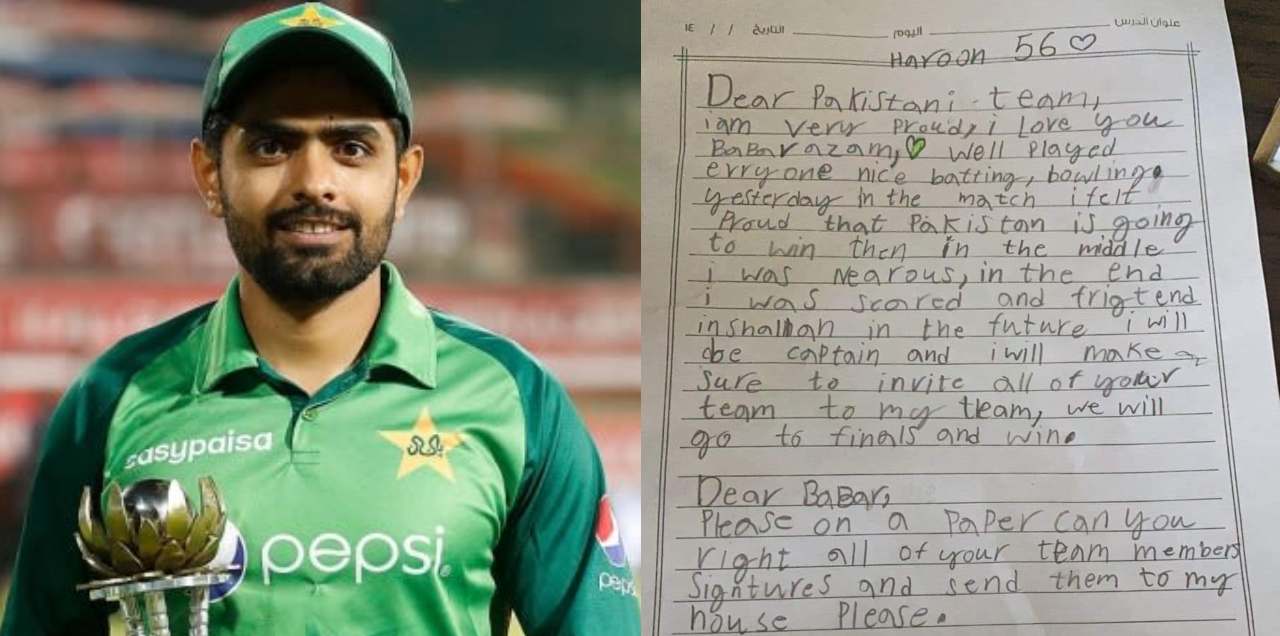 easypaisa
pepsi
pepsi
عنوان الدرس
اليوم
التاريخ / / ١٤
Haroon 56
Dear Pakistani team,
i am very proud, i love you
BaBar azam, well played
erryone nice batting, bowling.
yesterday in the match i felt
Proud that Pakistan is going
to win then in the middle
i was nearous, in the end
i was scared and frigtend
inshallah in the future i will
be captain and i will make
sure to invite all of your
team to my team, we will
go to finals and win.
Dear BaBar,
Please on a paper can you
right all of your team members
signtures and send them to my
house please.